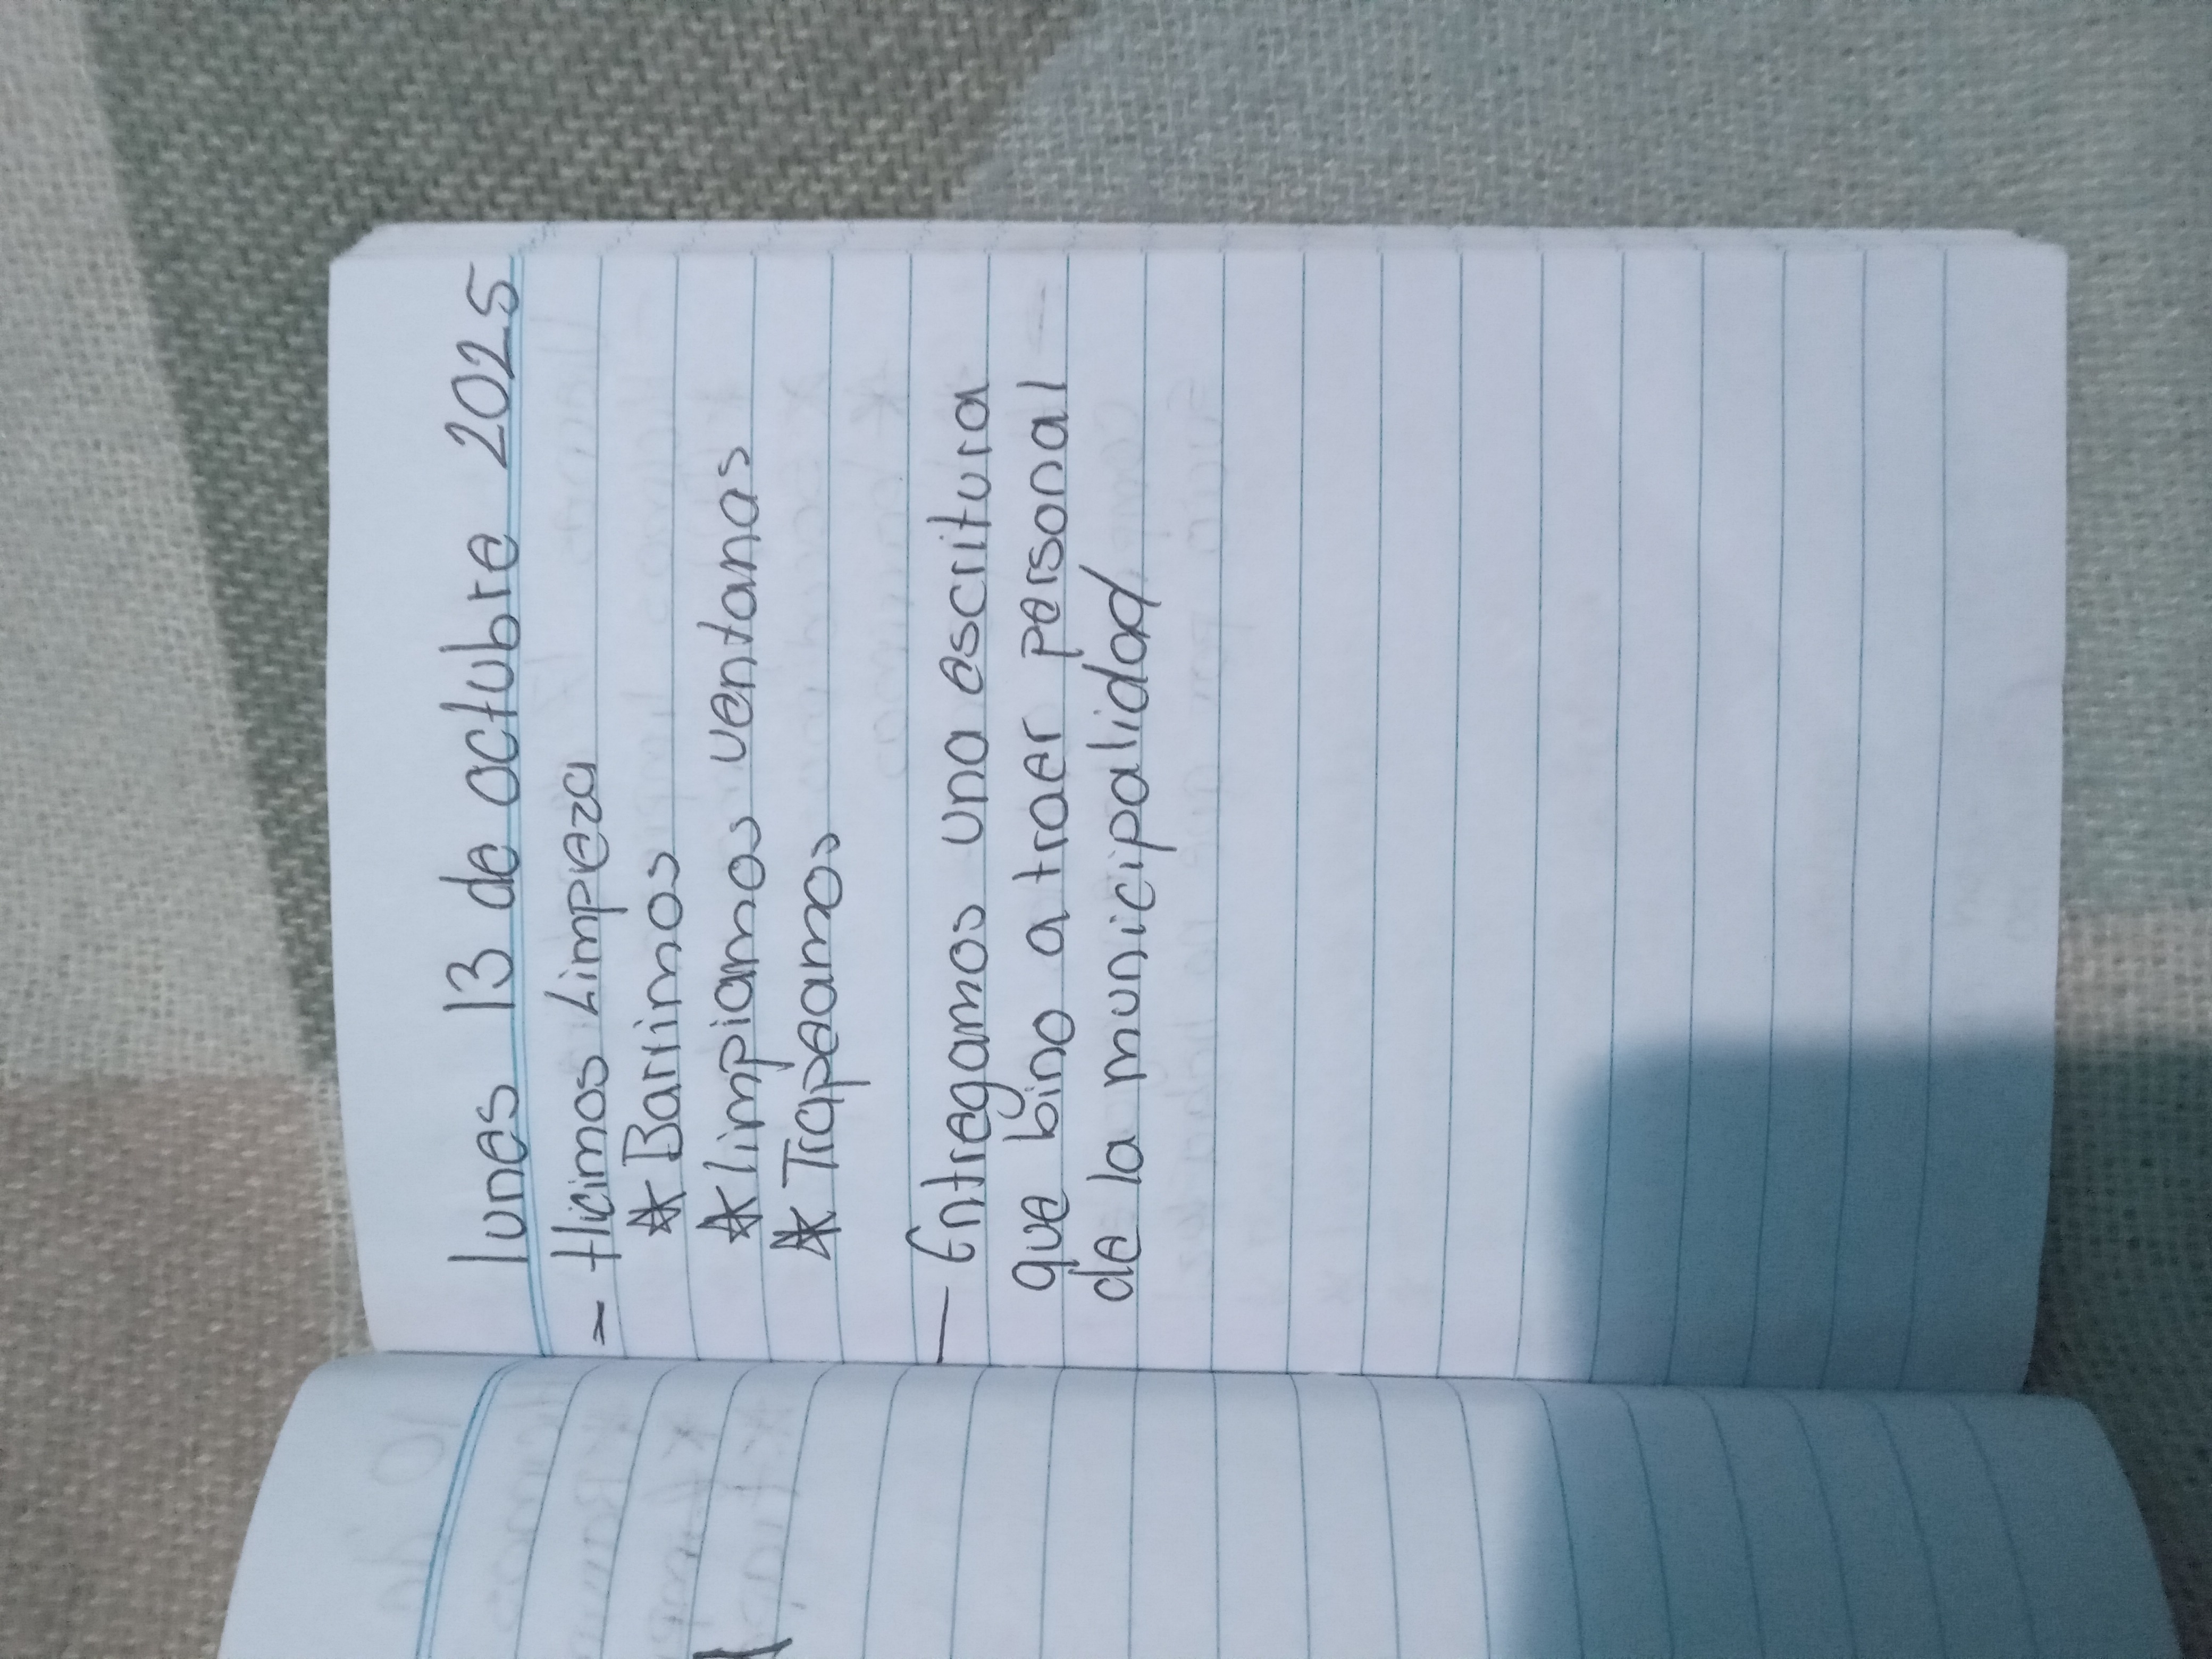 lunes 13 de octubre 2025
- Hicimos Limpeza
* Barrimos
* limpiamos ventanas
* Trapeamos
- Entregamos una escritura
que bino a traer personal
de la municipalidad